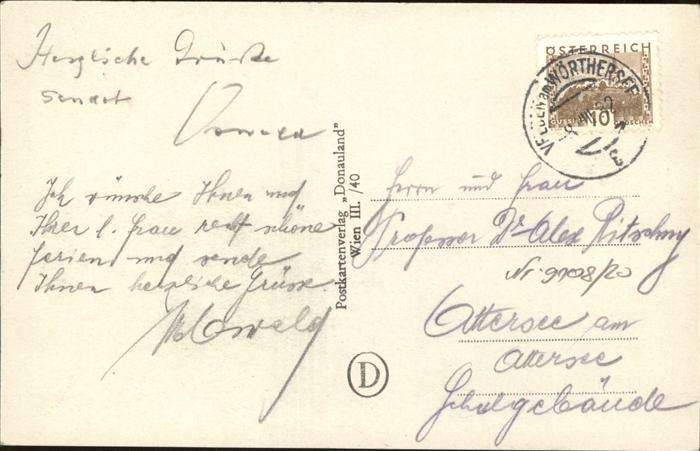 Herzliche Grüße
sendet
Oswald
Ich wünsche Ihnen und
Ihrer l. Frau recht schöne
Ferien und sende
Ihnen herzliche Grüsse
Oswald
Postkartenverlag „Donauland"
Wien III. /40
D
ÖSTERREICH
10
VELDEN am WÖRTHERSEE
Herrn und Frau
Professor Dr Alex Pitschny
Nr. 9708/20
Attersee am
Attersee
Schulgebäude